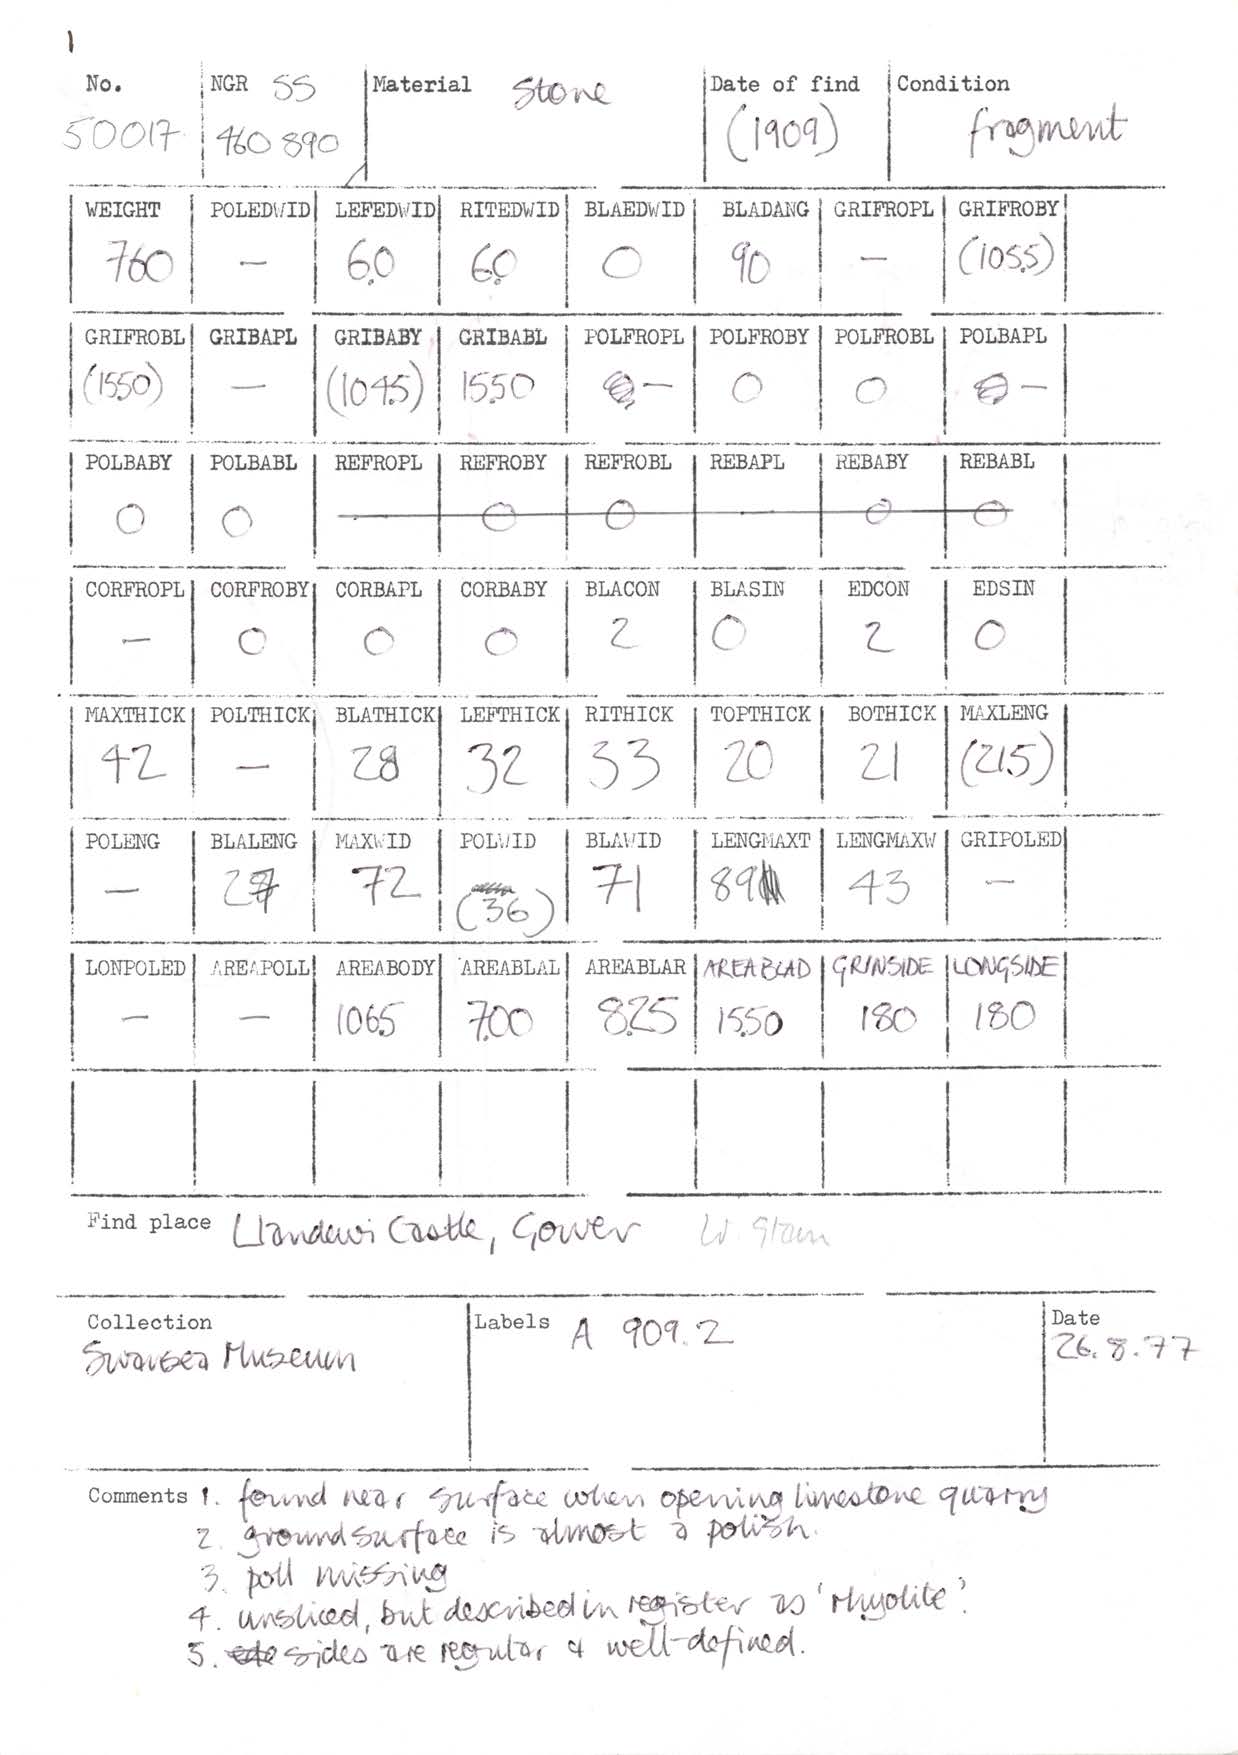 1
No. NGR SS Material Stone Date of find Condition
50017 460 890 (1909) fragment
WEIGHT POLEDWID LEFEDWID RITEDWID BLAEDWID BLADANG GRIFROPL GRIFROBY
760 — 6.0 6.0 0 90 — (105.5)
GRIFROBL GRIBAPL GRIBABY GRIBABL POLFROPL POLFROBY POLFROBL POLBAPL
(15.50) — (104.5) 15.50 — 0 0 —
POLBABY POLBABL REFROPL REFROBY REFROBL REBAPL REBABY REBABL
0 0 — 0 0 — 0 0
CORFROPL CORFROBY CORBAPL CORBABY BLACON BLASIN EDCON EDSIN
— 0 0 0 2 0 2 0
MAXTHICK POLTHICK BLATHICK LEFTHICK RITHICK TOPTHICK BOTHICK MAXLENG
42 — 28 32 33 20 21 (215)
POLENG BLALENG MAXWID POLWID BLAWID LENGMAXT LENGMAXW GRIPOLED
— 72 (36) 71 89 43 —
LONPOLED AREAPOLL AREABODY AREABLAL AREABLAR AREABLAD GRINSIDE LONGSIDE
— — 106.5 7.00 8.25 15.50 180 180
Find place Llandewi Castle, Gower W. Glam
Collection Labels A 909.2 Date
Swansea Museum 26.8.77
Comments 1. found near surface when opening limestone quarry
2. ground surface is almost a polish.
3. poll missing
4. unsliced, but described in register as 'rhyolite'.
5. sides are regular & well-defined.